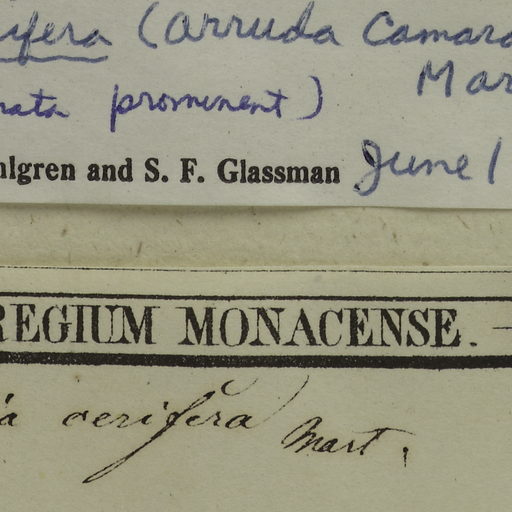 ifera (Arruda Camara
Mar
rata prominent)
hlgren and S. F. Glassman June 1
REGIUM MONACENSE. —
a cerifera Mart.